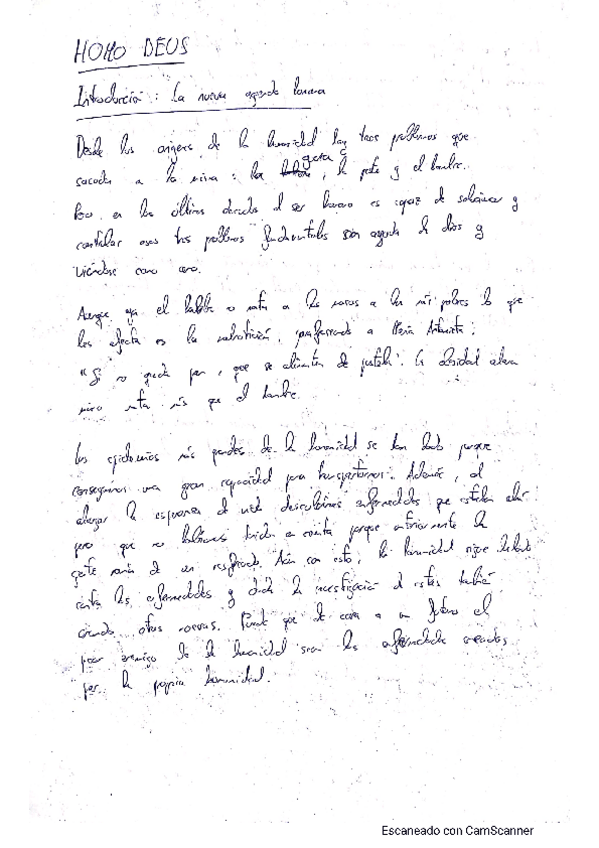 HOMO DEUS
Introducción: La nueva agenda humana
Desde los orígenes de la humanidad hay tres problemas que
a la misma: la guerra, la peste y el hambre.
Pero, en las últimas décadas el ser humano es capaz de solucionar y
controlar esos tres problemas fundamentales
viéndose como
Aunque ya el hambre no mata a las masas a los más pobres lo que
les afecta es la malnutrición, parafraseando a María Antonieta:
"Si no queda pan, que se alimenten de pasteles". La obesidad ahora
mismo mata más que el hambre.
Las epidemias más grandes de la humanidad se han dado porque
conseguimos una gran capacidad para transportarnos. Además, al
alargar la esperanza de vida descubrimos enfermedades que estaban ahí
pero que no habíamos tenido en cuenta porque anteriormente la
gente moría de un resfriado. Aún con esto, la humanidad sigue
contra las enfermedades y la investigación de estas también
creando otras nuevas. Puede que de cara a un futuro el
peor enemigo de la humanidad sean las enfermedades creadas
por la propia humanidad.
Escaneado con CamScanner